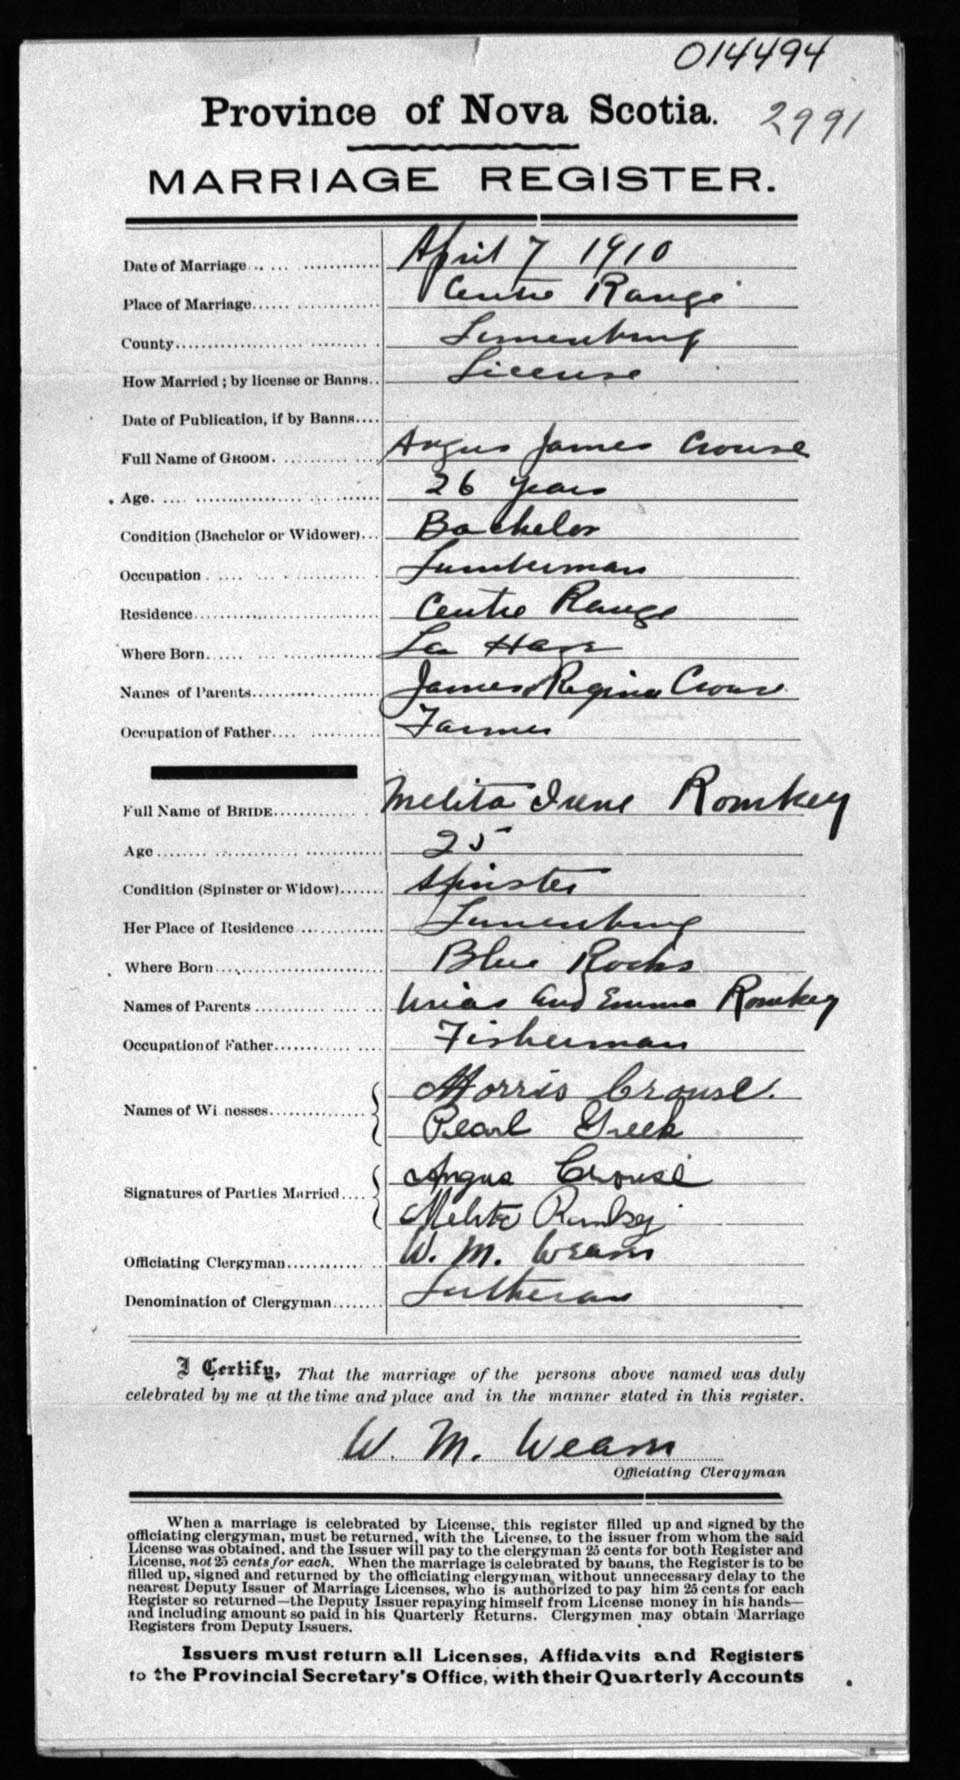 014494
Province of Nova Scotia.
2991
MARRIAGE REGISTER.
Date of Marriage April 7 1910
Place of Marriage Centre Range
County Lunenburg
How Married; by license or Banns License
Date of Publication, if by Banns
Full Name of GROOM. Angus James Crouse
Age. 26 years
Condition (Bachelor or Widower) Bachelor
Occupation Lumberman
Residence Centre Range
Where Born La Have
Names of Parents James & Regina Crouse
Occupation of Father Farmer
Full Name of BRIDE Melita Irene Romkey
Age 25
Condition (Spinster or Widow) Spinster
Her Place of Residence Lunenburg
Where Born Blue Rocks
Names of Parents Urias and Emma Romkey
Occupation of Father Fisherman
Names of Witnesses Morris Crouse.
Pearl Greek
Signatures of Parties Married Angus Crouse
Melita Romkey
Officiating Clergyman W. M. Weams
Denomination of Clergyman Lutheran
I Certify, That the marriage of the persons above named was duly
celebrated by me at the time and place and in the manner stated in this register.
W. M. Weams
Officiating Clergyman
When a marriage is celebrated by License, this register filled up and signed by the
officiating clergyman, must be returned, with the License, to the issuer from whom the said
License was obtained, and the Issuer will pay to the clergyman 25 cents for both Register and
License, not 25 cents for each. When the marriage is celebrated by banns, the Register is to be
filled up, signed and returned by the officiating clergyman without unnecessary delay to the
nearest Deputy Issuer of Marriage Licenses, who is authorized to pay him 25 cents for each
Register so returned—the Deputy Issuer repaying himself from License money in his hands—
and including amount so paid in his Quarterly Returns. Clergymen may obtain Marriage
Registers from Deputy Issuers.
Issuers must return all Licenses, Affidavits and Registers
to the Provincial Secretary's Office, with their Quarterly Accounts